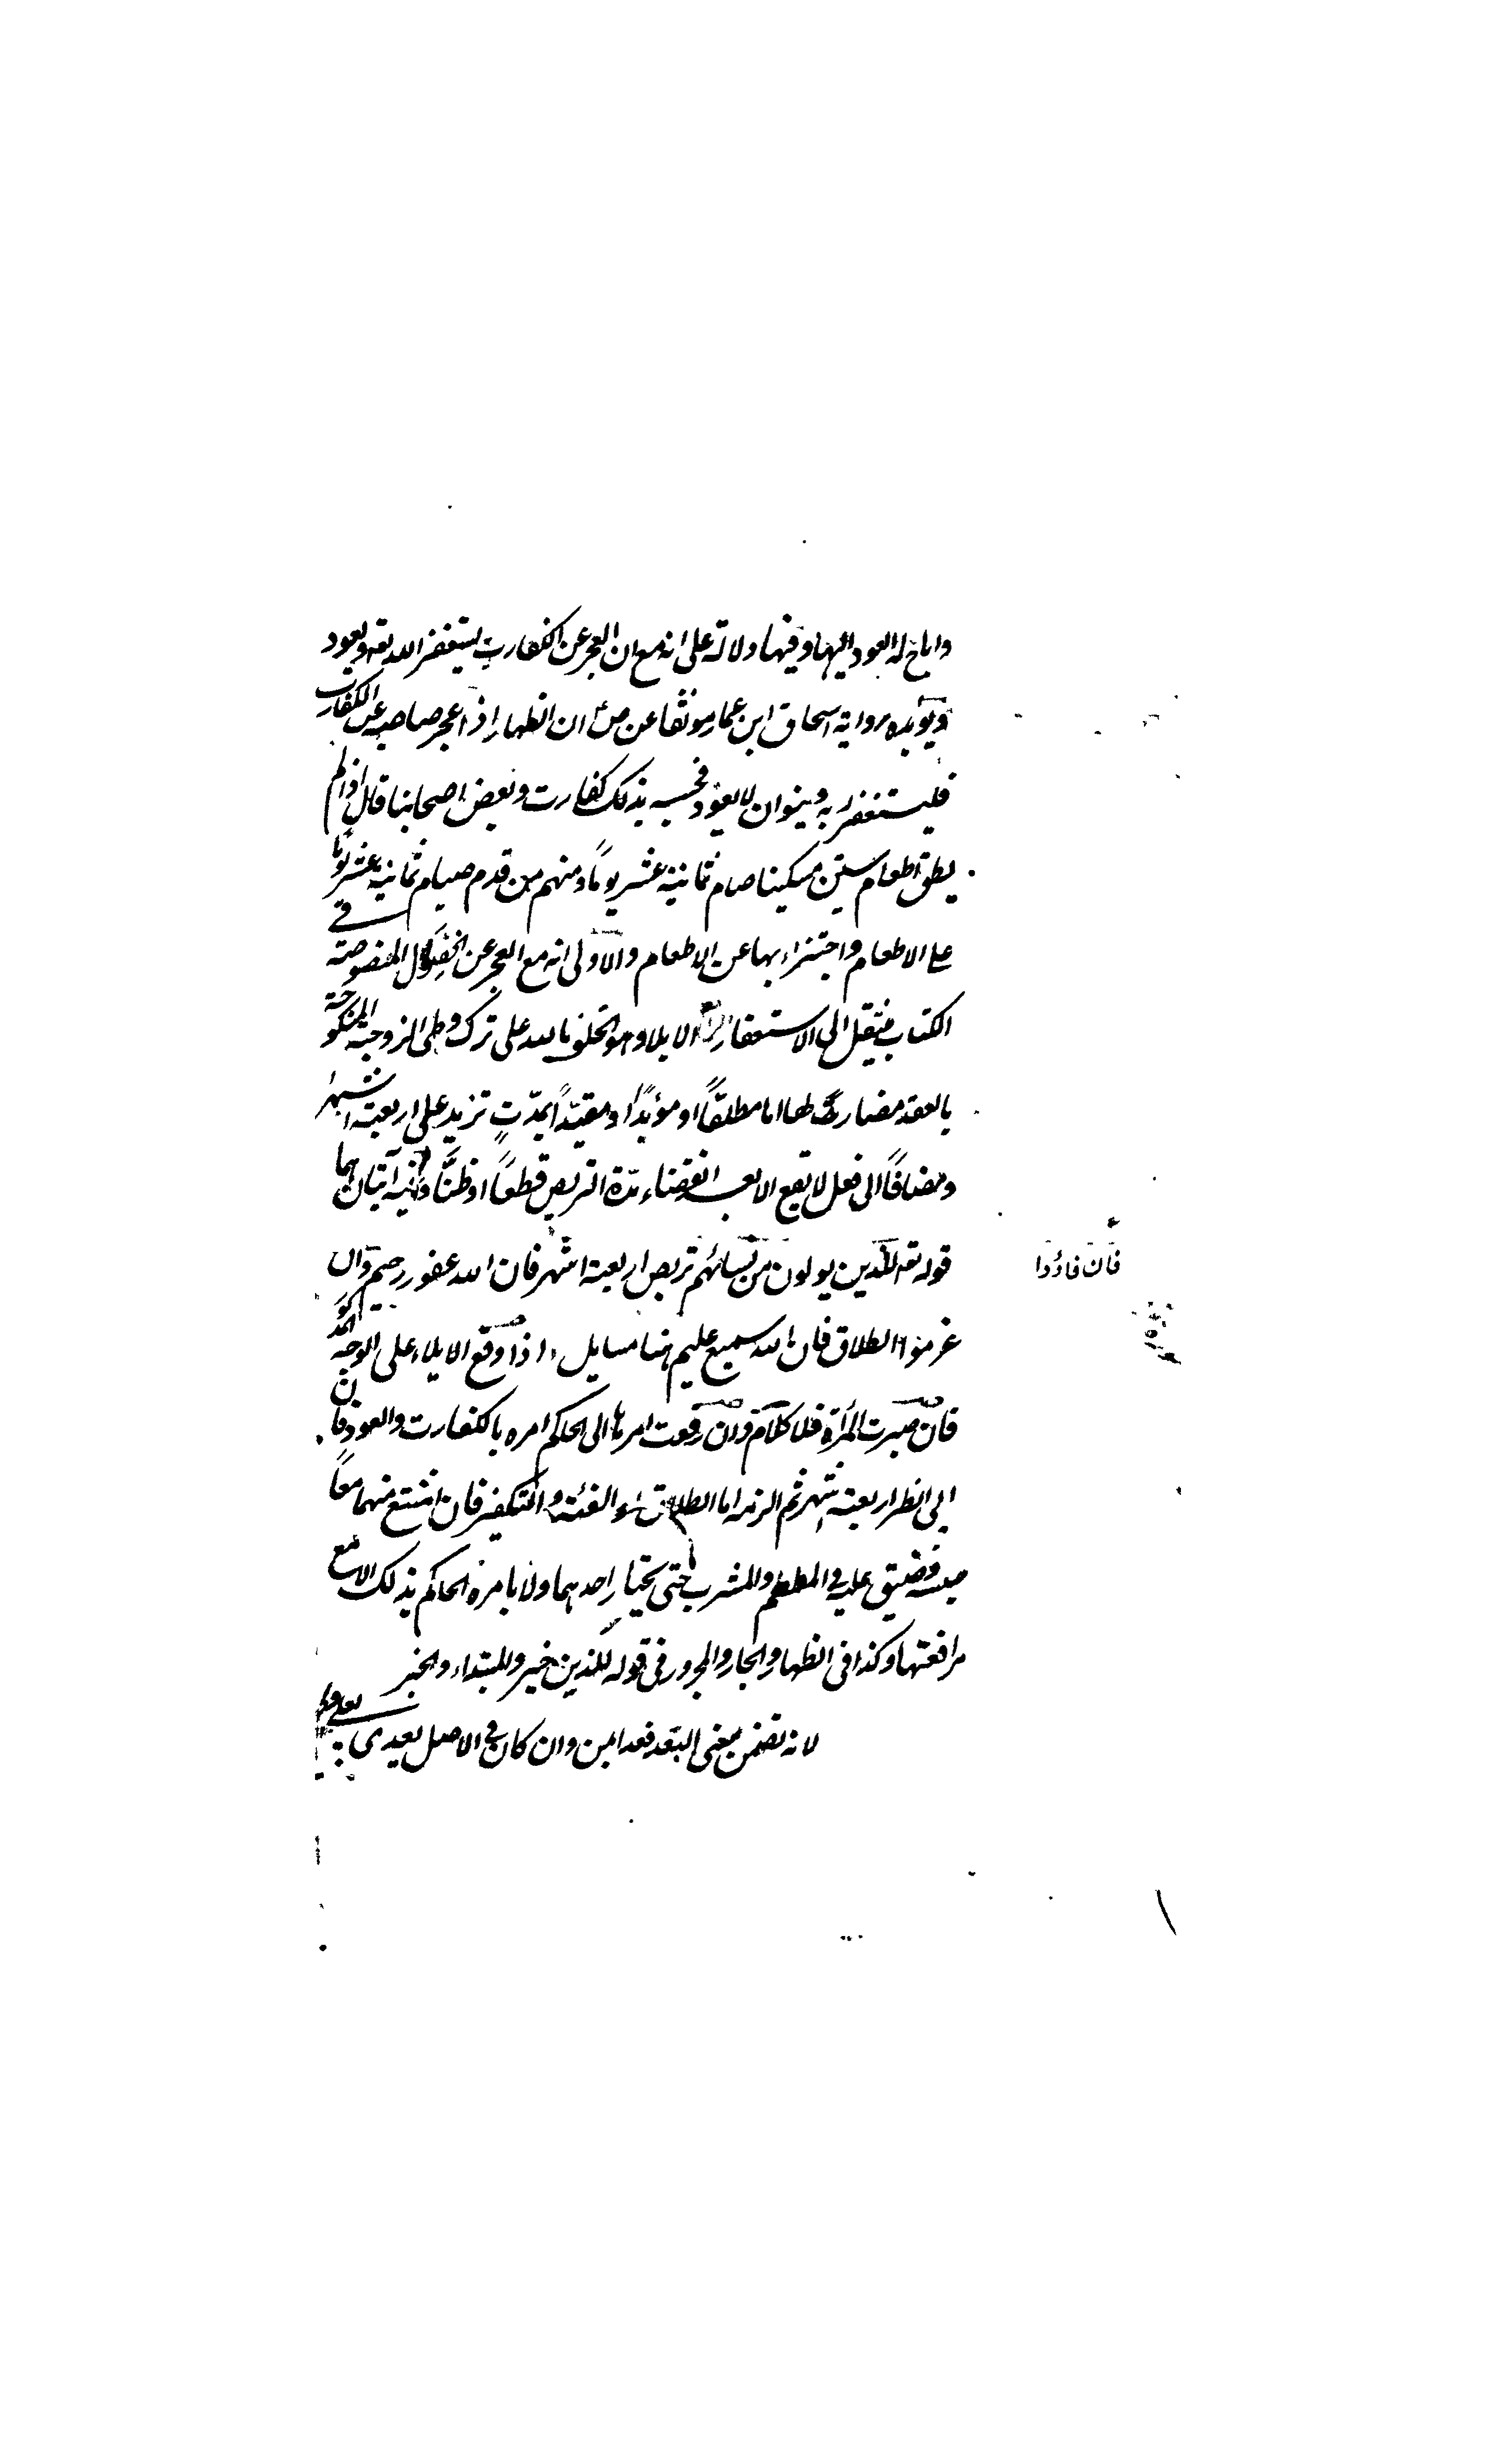 واباح له العود اليها وفيها دلالة على انه مع ان العجز عن الكفارت يستغفر الله تعه ويعود
ويؤيده رواية اسحاق ابن عمار موثقا عن ص ان الظهار اذا عجز صاحبه عن الكفارت
فليستغفر ربه وينوان لا يعود فحسبه بذلك كفارت وبعض اصحابنا قال اذا لم
يطق اطعام ستين مسكينا صام ثمانية عشر يوماً ومنهم من قدم صيام ثمانية عشر يوما
على الاطعام واجتزاء بها عن الاطعام والاولى انه مع العجز عن الخصال المنصوصة في
الكتاب ينتقل الى الاستغفار الايلاء وهو الحلف بالله على ترك وطى الزوجة المنكوحة
بالعقد مضارة لها اما مطلقاً او مؤبداً او مقيّداً بمدّتٍ تزيد على اربعة اشهر
ومضافاً الى فعل لا تقع الا بعد انقضاء مدّة التربص قطعاً او ظنّاً وفيه آيتان هما
قوله تعه للذين يولون من نسائهم تربص اربعة اشهر فان الله غفور رحيم وان
فان فاؤوا
عزموا الطلاق فان الله سميع عليم هنا مسايل ا اذا وقع الايلاء على الوجه
فان صبرت المرأة فلا كلام وان رفعت امرها الى الحاكم امره بالكفارت والعود فان
ابى انظر اربعة اشهر ثم الزمه اما الطلاق او الفئة والتكفير فان امتنع منهما معاً
حبسه وضيق عليه في المطعم والمشرب حتى يختار احدهما ولا يامره الحاكم بذلك الا مع
مرافعتها وكذا فى الظهار والجار والمجرور فى قوله للذين خبر وللمبتداء والخبر
لانه تضمن معنى البعد فعدا بمن وان كان في الاصل يعدى بعلى